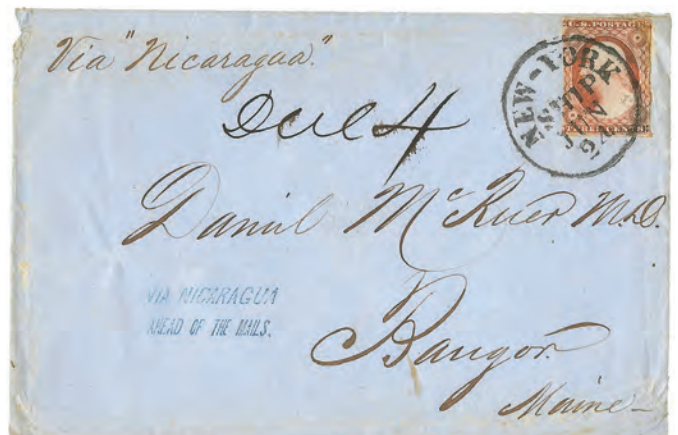 Via "Nicaragua".
U.S. POSTAGE
NEW-YORK
SHIP
24
Due 4
Daniel McRuer M.D.
VIA NICARAGUA
AHEAD OF THE MAILS.
Bangor
Maine